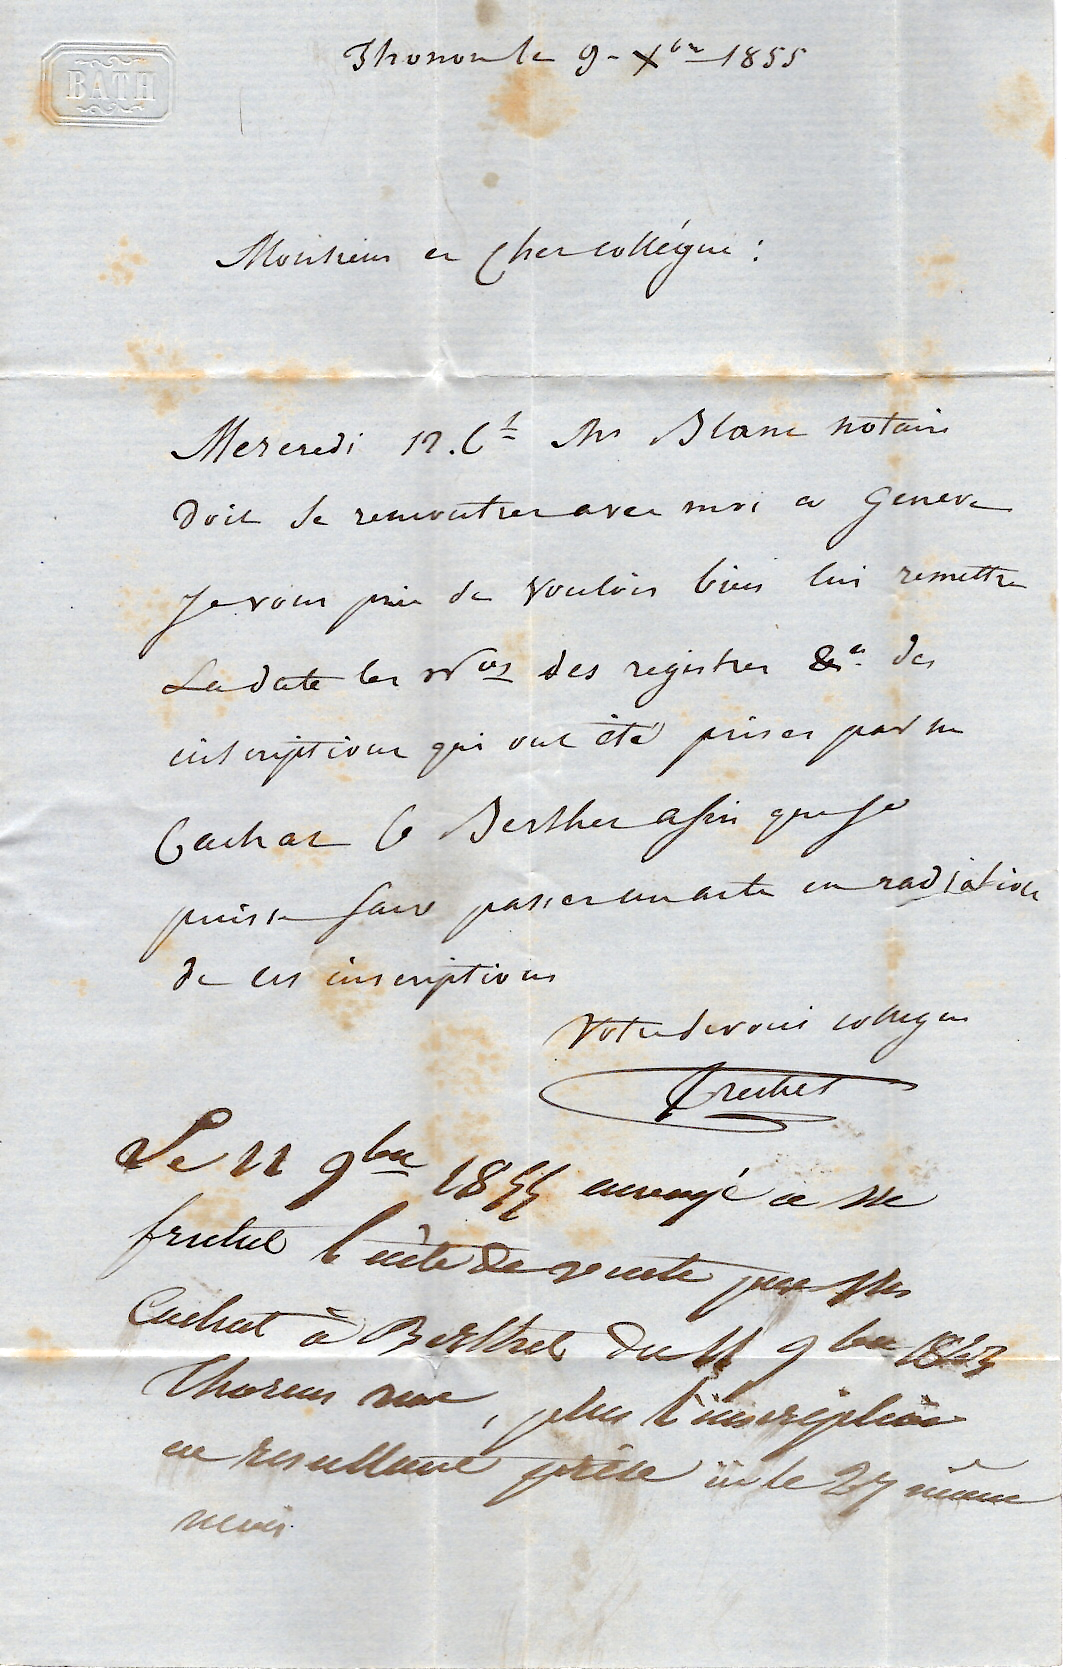 BATH
Thonon le 9 - Xbre 1855
Monsieur et Cher collégue :
Mercredi 12. Ct Mr Blanc notaire
doit se rencontrer avec moi a Geneve
Je vous prie de vouloir bien lui remettre
La date les Nos des registres &a. des
inscriptions qui ont été prises par m
Cachat Cе Berthet afin que je
puisse faire passer un acte en radiation
de ces inscriptions
Votre devoué collegue
Le 11 9bre 1855 envoyé a Me
l'acte de vente par Mes
Cachat à Berthet du 11 9bre 1843
Thorens nore, plus l'inscription
en resultant prise ici le 27 même
mois.